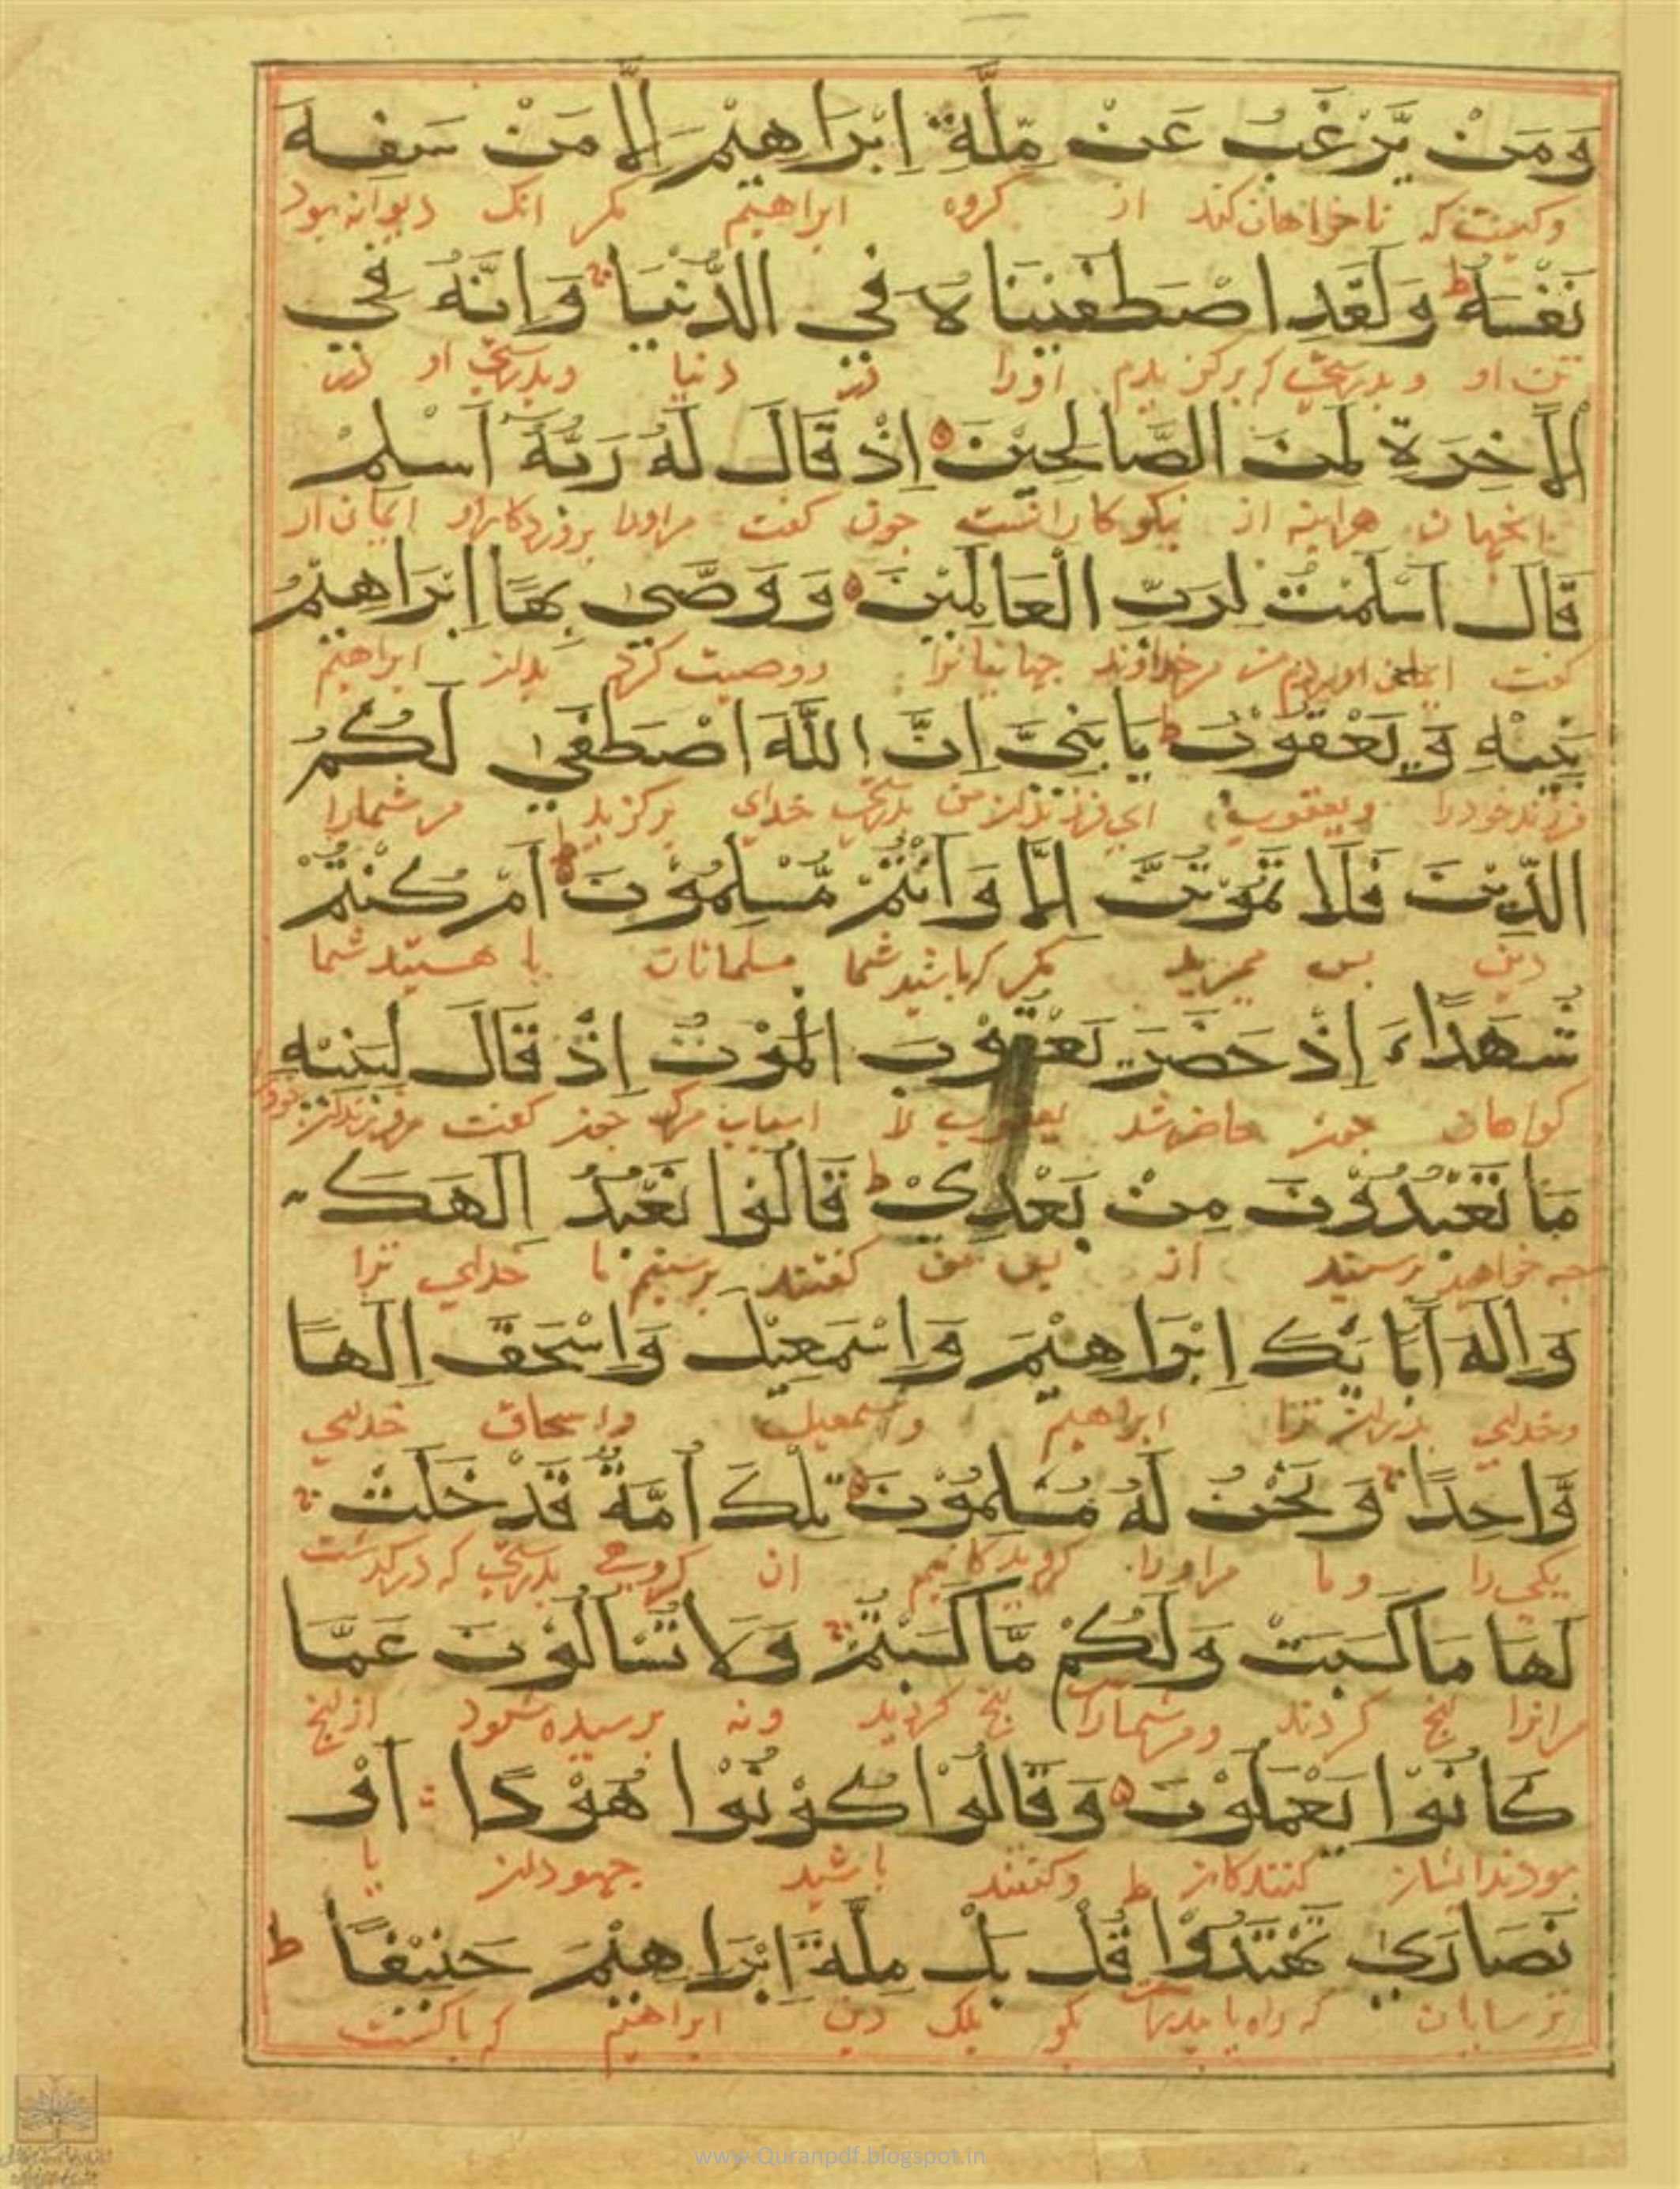 وَمَنْ يَّرْغَبُ عَنْ مِّلَّةِ اِبْرَاهِيْمَ اِلَّا مَنْ سَفِهَ
وکیست که ناخواهان کند از کروه ابراهیم مکر انک دیوانه بود
نَفْسَهُ ط وَلَقَدِ اصْطَفَيْنَاهُ فِي الدُّنْيَا وَاِنَّهُ فِي
تن او وبدرستی که برکزیدیم اورا در دنیا وبدرستی او در
الْاٰخِرَةِ لَمِنَ الصَّالِحِيْنَ اِذْ قَالَ لَهُ رَبُّهُ اَسْلِمْ
ان جهان هراینه از نیکوکارانست جون کفت مراورا بروردکار او ایمان ار
قَالَ اَسْلَمْتُ لِرَبِّ الْعَالَمِيْنَ وَوَصّٰى بِهَا اِبْرَاهِيْمُ
کفت ایمان اوردم من خداوند جهانیانرا ووصیت کرد بدان ابراهیم
بَنِيْهِ وَيَعْقُوْبُ ط يَا بَنِيَّ اِنَّ اللّٰهَ اصْطَفٰى لَكُمُ
فرزندان خودرا ویعقوب ای فرزندان من بدرستی خدای برکزید مر شمارا
الدِّيْنَ فَلَا تَمُوْتُنَّ اِلَّا وَاَنْتُمْ مُّسْلِمُوْنَ ط اَمْ كُنْتُمْ
دین بس میرید مکر که باشید شما مسلمانان یا هستید شما
شُهَدَاءَ اِذْ حَضَرَ يَعْقُوْبَ الْمَوْتُ اِذْ قَالَ لِبَنِيْهِ
کواهان جون حاضر شد یعقوب را اسباب مرک جون کفت مر فرزندان خود
مَا تَعْبُدُوْنَ مِنْ بَعْدِيْ ط قَالُوْا نَعْبُدُ اِلٰهَكَ
جه خواهید برستید از بس من کفتند برستیم ما خدای ترا
وَاِلٰهَ اٰبَائِكَ اِبْرَاهِيْمَ وَاِسْمٰعِيْلَ وَاِسْحٰقَ اِلٰهًا
وخدای بدران ترا ابراهیم واسمعیل واسحاق خدایی
وَّاحِدًا وَنَحْنُ لَهُ مُسْلِمُوْنَ تِلْكَ اُمَّةٌ قَدْ خَلَتْ
یکی را وما مراورا کرویدکانیم ان کروهی بدرستی که درکذشت
لَهَا مَا كَسَبَتْ وَلَكُمْ مَّا كَسَبْتُمْ وَلَا تُسْأَلُوْنَ عَمَّا
مرانرا انج کردند ومر شمارا انج کردید ونه برسیده شود از انج
كَانُوْا يَعْمَلُوْنَ وَقَالُوْا كُوْنُوْا هُوْدًا اَوْ
بودند ایشان کنندکان ط وکفتند باشید جهودان یا
نَصَارٰى تَهْتَدُوْا قُلْ بَلْ مِلَّةَ اِبْرَاهِيْمَ حَنِيْفًا ط
ترسایان که راه یابید بکو بلک دین ابراهیم که باکست
www.Quranpdf.blogspot.in